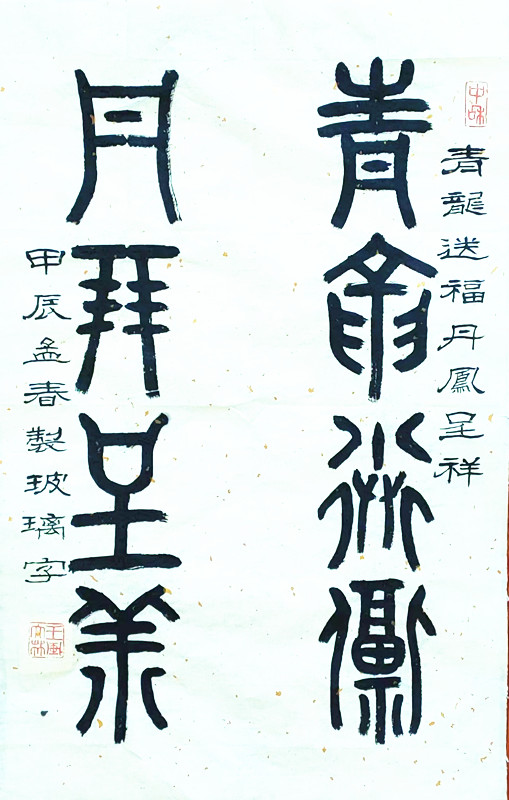 中和
青龍送福丹鳳呈祥
青龍送福
丹鳳呈祥
甲辰孟春製玻璃字